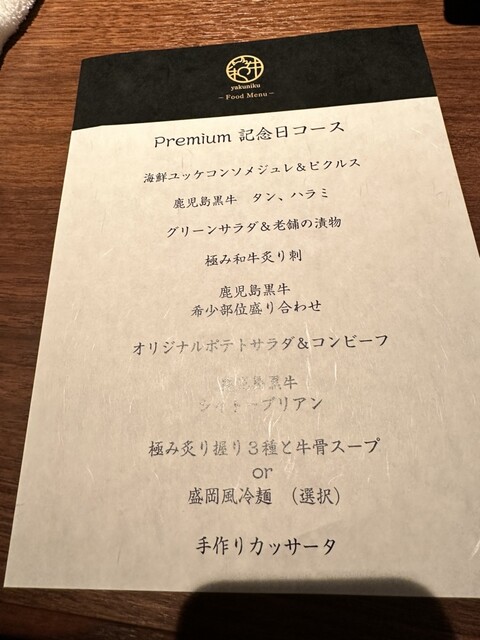 yakuniku
– Food Menu –
Premium 記念日コース
海鮮ユッケコンソメジュレ＆ピクルス
鹿児島黒牛　タン、ハラミ
グリーンサラダ＆老舗の漬物
極み和牛炙り刺
鹿児島黒牛
希少部位盛り合わせ
オリジナルポテトサラダ＆コンビーフ
鹿児島黒牛
シャトーブリアン
極み炙り握り３種と牛骨スープ
or
盛岡風冷麺　（選択）
手作りカッサータ